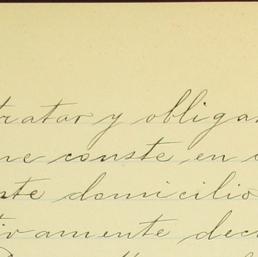 tratar y obliga
ne conste en
nte domicilio
tivamente dec